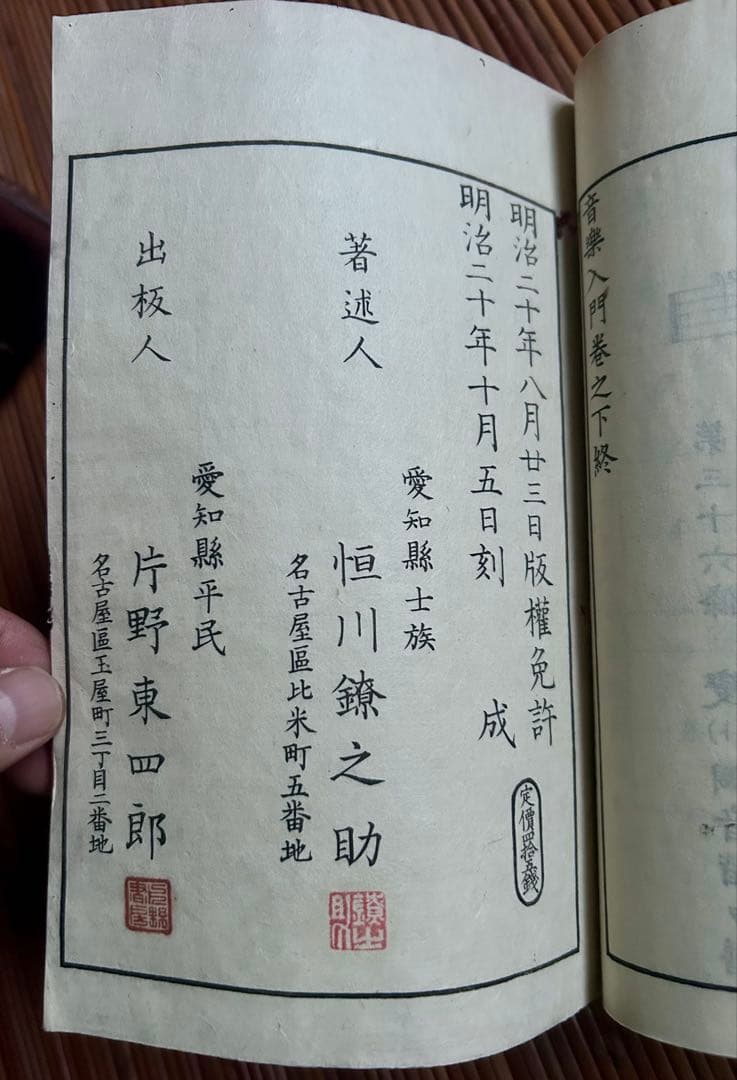 音樂入門卷之下終
明治二十年八月廿三日版權免許
明治二十年十月五日刻成
定價四拾五錢
著述人
愛知縣士族
恒川鐐之助
名古屋區比米町五番地
出板人
愛知縣平民
片野東四郎
名古屋區玉屋町三丁目二番地